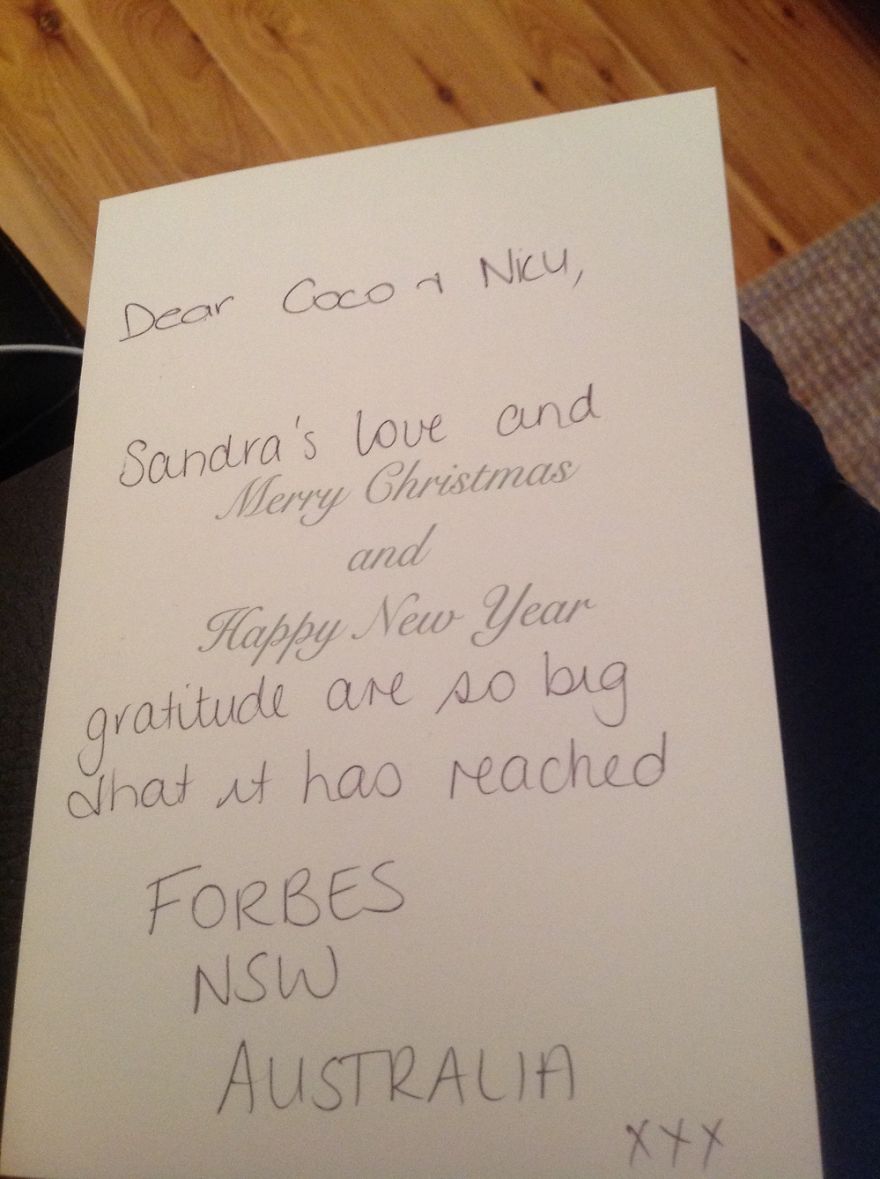 Dear Coco & Nicu,
Sandra's love and
Merry Christmas
and
Happy New Year
gratitude are so big
that it has reached
FORBES
NSW
AUSTRALIA
xxx